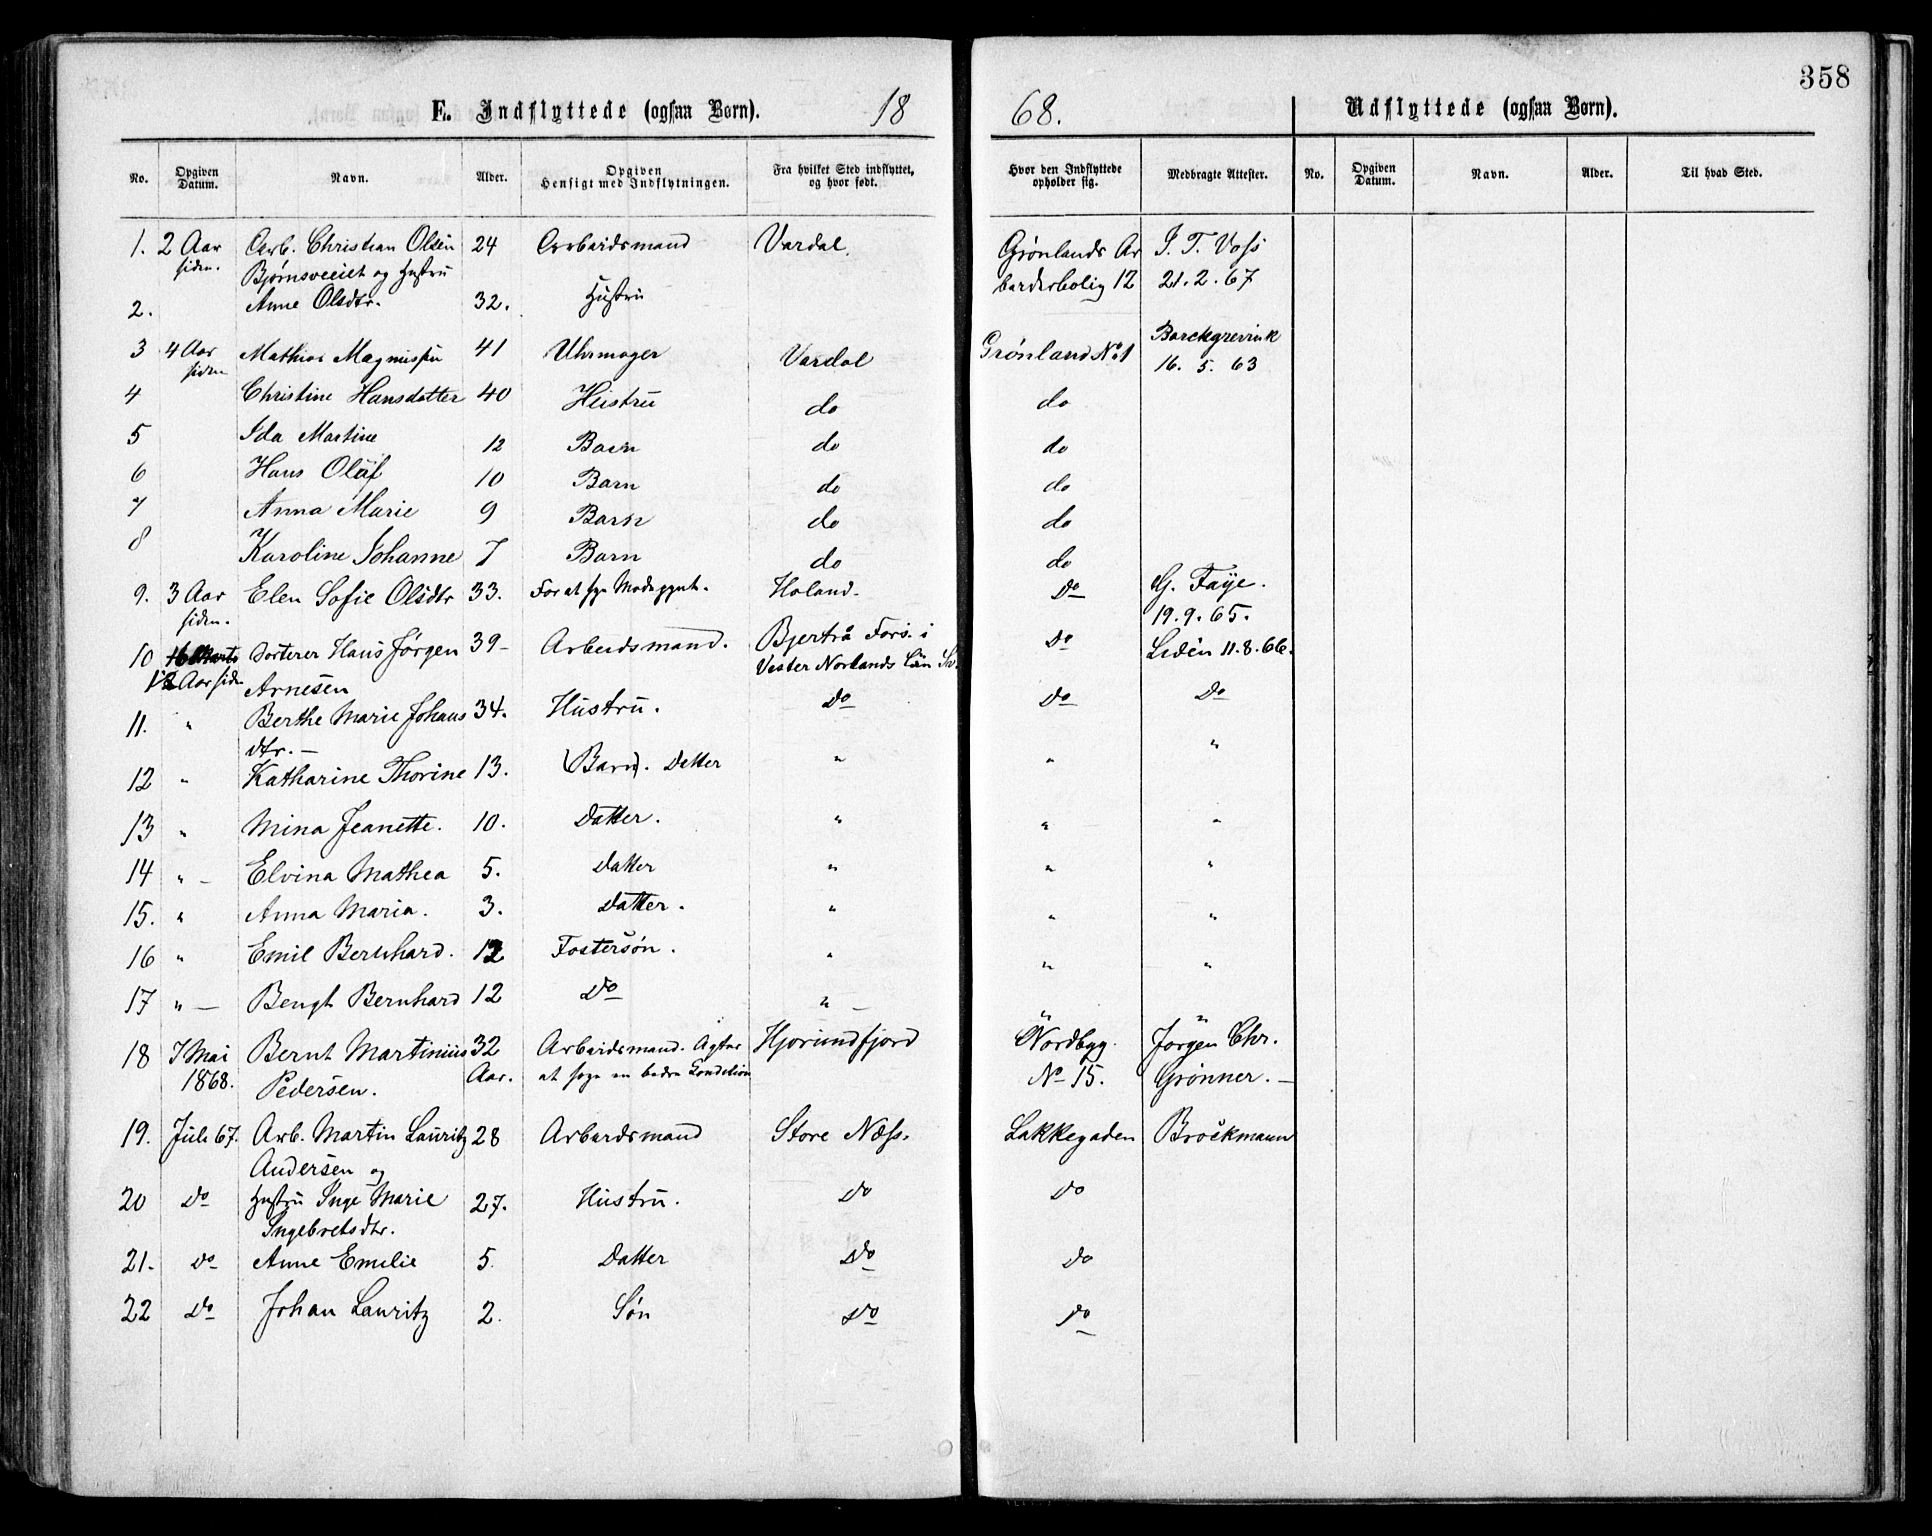 358
F. Indflyttede (ogsaa Børn). 18 68. Udflyttede (ogsaa Børn).
No. Opgiven Datum. Navn. Alder. Opgiven Hensigt med Indflytningen. Fra hvilket Sted indflyttet, og hvor født. Hvor den Indflyttede opholder sig. Medbragte Attester. No. Opgiven Datum. Navn. Alder. Til hvad Sted.
1. 2 Aar Arb. Christian Olsen 24 Arbeidsmand Vardal. Grønlands Ar J. T. Voss
siden. Bjørnsveeiet og Hustru beiderbolig 12 21.2.67
2. Anne Olsdtr. 32. Hustru
3 4 Aar Mathias Magnussen 41 Uhrmager Vardal Grønland No 1 Borchgrevink
siden 16. 5. 63
4 Christine Hansdatter 40 Hustru do do
5 Ida Martine 12 Barn do do
6 Hans Olaf 10 Barn do do
7 Anna Marie 9 Barn do do
8 Karoline Johanne 7 Barn do do
9. 3 Aar Elen Sofie Olsdtr 33. For at sye Modepynt. Høland. Do G. Faye.
siden. 19.9.65.
10 16 Marts Sorterer Hans Jørgen 39- Arbeidsmand. Bjertrå Fors. i Do Lidèn 11.8.66.
1½ Aar siden Arnesen Vester Norlands Län Sv.
11. " Berthe Marie Johans 34. Hustru. Do Do Do
dtr. —
12 " Katharine Thorine 13. (Barn). Datter " " "
13 " Mina Jeanette. 10. Datter. " " "
14 " — Elvina Mathea 5. Datter " " "
15. " Anna Maria. 3. Datter. " " "
16 " Emil Bernhard. 12 Fostersøn. " " "
17 " — Bengt Bernhard 12 Do " — " "
18 7 Mai Bernt Martinius 32 Arbeidsmand. Agter Hjørundfjord Nordbyg. Jørgen Chr.
1868. Pedersen. Aar. at søge en bedre Condition No 15. Grønner. —
19. Juli 67. Arb. Martin Lauritz 28 Arbeidsmand Store Næss. Lakkegaden Brockmann
Andersen og
20 Do Hustru Inge Marie 27. Hustru. Do Do
Ingebretsdtr.
21. Do Anne Emilie 5. Datter Do Do
22 Do Johan Lauritz 2. Søn Do Do